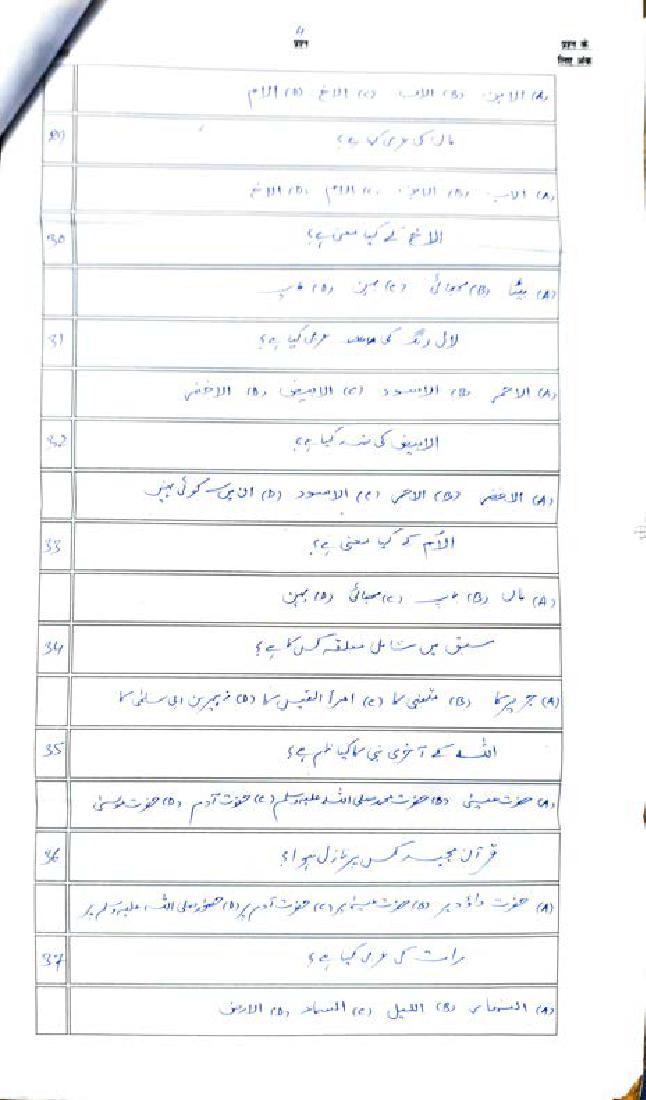 4
प्रश्न
प्रश्न के
लिए अंक
(A) الابن (B) الاب (C) الاخ (D) الام
29 ماں کی عربی کیا ہے؟
(A) الاب (B) الابن (C) الام (D) الاخ
30 الاخ کے کیا معنی ہے؟
(A) بیٹا (B) بھائی (C) بہن (D) باپ
31 لال رنگ کی عربی کیا ہے؟
(A) الاحمر (B) الاسود (C) الابیض (D) الاخضر
32 الابیض کی ضد کیا ہے؟
(A) الاخضر (B) الاحمر (C) الاسود (D) ان میں سے کوئی نہیں
33 الاُم کے کیا معنی ہے؟
(A) ماں (B) باپ (C) بھائی (D) بہن
34 سبق میں شامل معلقہ کس کا ہے؟
(A) جریر کا (B) متنبی کا (C) امرا القیس کا (D) زہیر بن ابی سلمیٰ کا
35 اللہ کے آخری نبی کا کیا نام ہے؟
(A) حضرت عیسیٰ (B) حضرت محمد صلی اللہ علیہ وسلم (C) حضرت آدم (D) حضرت موسیٰ
36 قرآن مجید کس پر نازل ہوا؟
(A) حضرت داؤد پر (B) حضرت عیسیٰ پر (C) حضرت آدم پر (D) حضور صلی اللہ علیہ وسلم پر
37 رات کی عربی کیا ہے؟
(A) النهار (B) اللیل (C) السماء (D) الارض